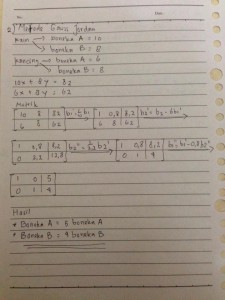 No. Date
2) Metode Gauss Jordan
Kain → boneka A = 10
→ boneka B = 8
Kancing → boneka A = 6
→ boneka B = 8
10x + 8y = 82
6x + 8y = 62
Matrik
[10 8 | 82] b1 = 1/10 b1 [1 0,8 | 8,2] b2' = b2 - 6b1'
[6 8 | 62] → [6 8 | 62] →
[1 0,8 | 8,2] [1 0,8 | 8,2]
[0 3,2 | 12,8] → [0 1 | 4] →
[1 0 | 5]
[0 1 | 4]
Hasil
* Boneka A = 5 boneka A
* Boneka B = 4 boneka B